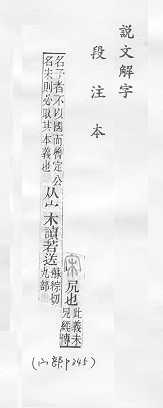 說文解字
段注本
宋 凥也 此義未
見經傳
名子者不以國而魯定公
名宋則必取其本義也
从宀木讀若送 蘇綜切
九部
(宀部 P345)